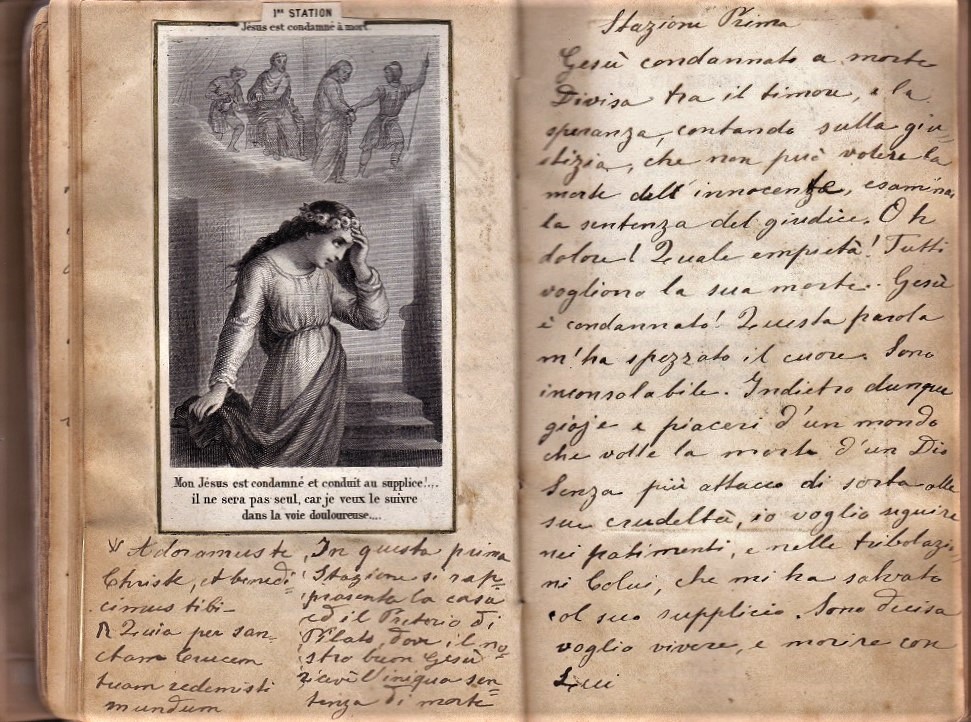 1re STATION
Jésus est condamné à mort.
Mon Jésus est condamné et conduit au supplice!...
il ne sera pas seul, car je veux le suivre
dans la voie douloureuse....
℣ Adoramus te
Christe, et benedi=
cimus tibi-
℟ Quia per san=
ctam Crucem
tuam redemisti
mundum
In questa prima
Stazione si rap=
presenta la casa
ed il Pretorio di
Pilato, dove il no=
stro buon Gesù
ricevè l'iniqua sen=
tenza di morte
Stazione Prima
Gesù condannato a morte
Divisa tra il timore, e la
speranza, contando sulla giu=
stizia, che non può volere la
morte dell'innocente, esamina
la sentenza del giudice. Oh
dolore! Quale empietà! Tutti
vogliono la sua morte. Gesù
è condannato! Questa parola
m'ha spezzato il cuore. Sono
inconsolabile. Indietro dunque
gioje e piaceri d'un mondo
che volle la morte d'un Dio
Senza più attacco di sorta alle
sue crudeltà, io voglio seguire
nei patimenti, e nelle tribolazi=
ni Colui, che mi ha salvato
col suo supplicio. Sono decisa
voglio vivere, e morire con
Lui